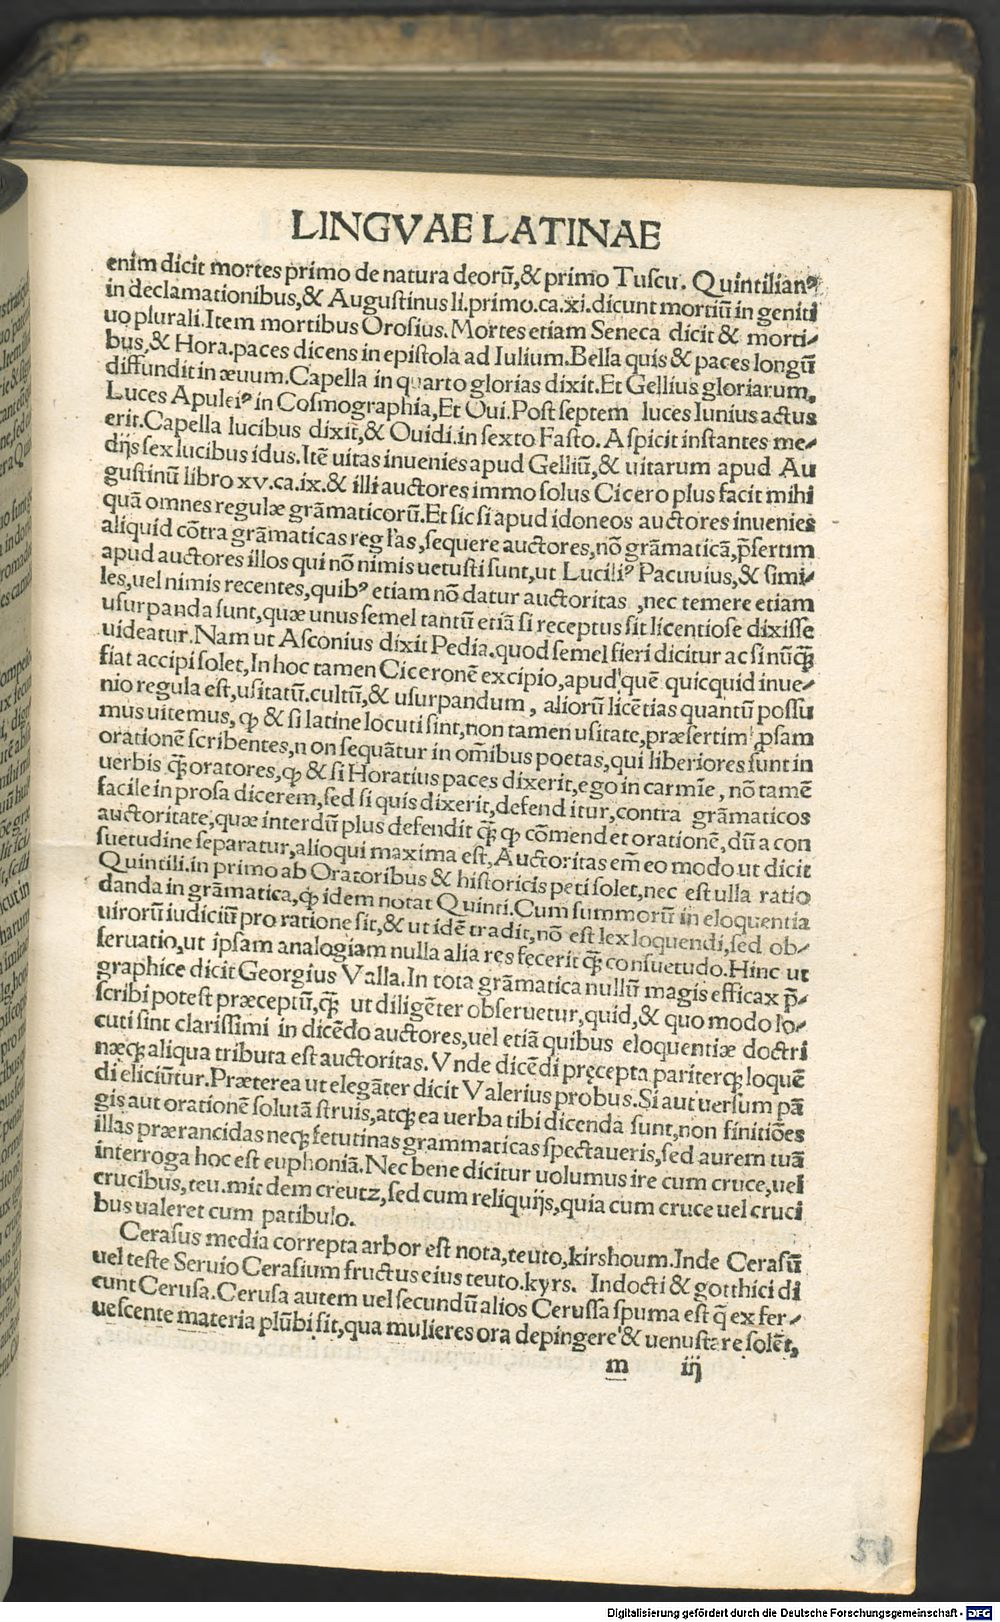 LINGVAE LATINAE
enim dicit mortes primo de natura deorū,& primo Tuscu. Quintilianꝰ
in declamationibus,& Augustinus li.primo.ca.xi.dicunt mortiū in geniti
uo plurali.Item mortibus Orosius.Mortes etiam Seneca dicit & morti⸗
bus,& Hora.paces dicens in epistola ad Iulium.Bella quis & paces longū
diffundit in æuum.Capella in quarto glorias dixit.Et Gellius gloriarum.
Luces Apuleiꝰ in Cosmographia,Et Oui.Post septem luces Iunius actus
erit.Capella lucibus dixit,& Ouidi.in sexto Fasto. Aspicit instantes me⸗
dijs sex lucibus idus.Itē uitas inuenies apud Gelliū,& uitarum apud Au
gustinū libro xv.ca.ix.& illi auctores immo solus Cicero plus facit mihi
quā omnes regulæ grāmaticorū.Et sic si apud idoneos auctores inuenies
aliquid cōtra grāmaticas regl'as,sequere auctores,nō grāmaticā,p̄sertim
apud auctores illos qui nō nimis uetusti sunt,ut Luciliꝰ Pacuuius,& simi⸗
les,uel nimis recentes,quibꝰ etiam nō datur auctoritas ,nec temere etiam
usurpanda sunt,quæ unus semel tantū etiā si receptus sit licentiose dixisse
uideatur.Nam ut Asconius dixit Pedia.quod semel fieri dicitur ac si nūꝙ̄
fiat accipi solet,In hoc tamen Ciceronē excipio,apud quē quicquid inue⸗
nio regula est,usitatū.cultū,& usurpandum, aliorū licētias quantū possu
mus uitemus, ꝙ & si latine locuti sint,non tamen usitate,præsertim ꝓsam
orationē scribentes,non sequātur in om̄ibus poetas,qui liberiores sunt in
uerbis ꝙ̄ oratores,ꝙ & si Horatius paces dixerit,ego in carmīe, nō tamē
facile in prosa dicerem,sed si quis dixerit,defenditur,contra grāmaticos
auctoritate,quæ interdū plus defendit ꝙ̄ ꝙ cōmendet orationē, dū a con
suetudine separatur,alioqui maxima est,Auctoritas em̄ eo modo ut dicit
Quintili.in primo ab Oratoribus & historicis peti solet,nec est ulla ratio
danda in grāmatica,ꝙ idem notat Quinti.Cum summorū in eloquentia
uirorū iudiciū pro ratione sit,& ut idē tradit,nō est lex loquendi,sed ob⸗
seruatio,ut ipsam analogiam nulla alia res fecerit ꝙ̄ consuetudo.Hinc ut
graphice dicit Georgius Valla.In tota grāmatica nullū magis efficax p̄⸗
scribi potest præceptū,ꝙ̄ ut diligēter obseruetur,quid,& quo modo lo⸗
cuti sint clarissimi in dicēdo auctores,uel etiā quibus eloquentiæ doctri
næꝗ aliqua tributa est auctoritas.Vnde dicēdi pręcepta pariterꝗ loquē
di eliciūtur.Præterea ut elegāter dicit Valerius probus.Si aut uersum pā
gis aut orationē solutā struis,atꝗ ea uerba tibi dicenda sunt,non finitiōes
illas prærancidas neꝗ fetutinas grammaticas spectaueris,sed aurem tuā
interroga hoc est euphoniā.Nec bene dicitur uolumus ire cum cruce,uel
crucibus,teu.mit dem creutz,sed cum reliquijs,quia cum cruce uel cruci
bus ualeret cum patibulo.
Cerasus media correpta arbor est nota,teuto,kirshoum.Inde Cerasū
uel teste Seruio Cerasium fructus eius teuto.kyrs. Indocti & gotthici di
cunt Cerusa.Cerusa autem uel secundū alios Cerussa spuma est q̄ ex fer⸗
uescente materia plūbi fit,qua mulieres ora depingere & uenustare solēt,
m iij
Digitalisierung gefördert durch die Deutsche Forschungsgemeinschaft - DFG